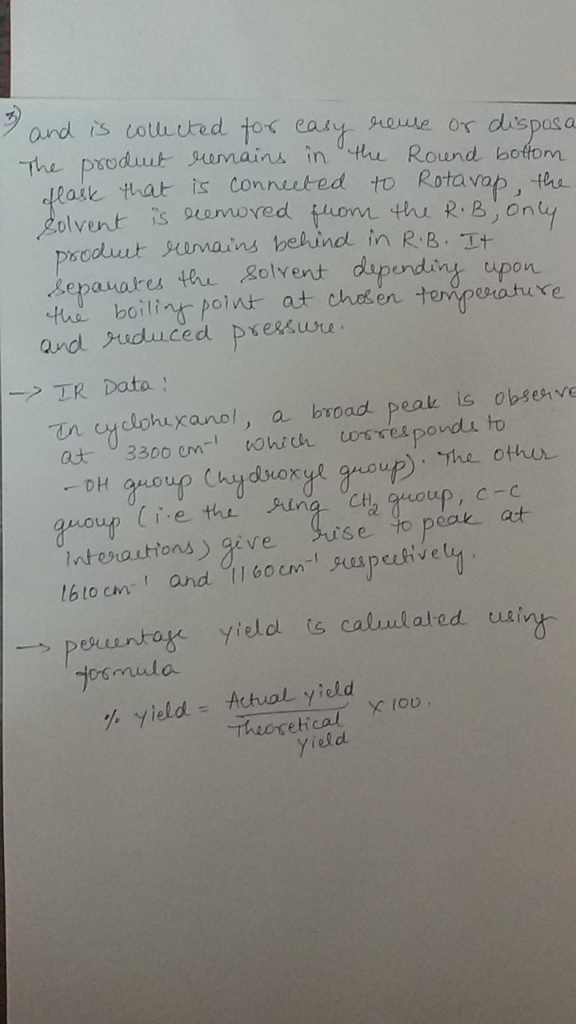 3) and is collected for easy reuse or disposa
The product remains in the Round bottom
flask that is connected to Rotavap, the
solvent is removed from the R.B, only
product remains behind in R.B. It
separates the solvent depending upon
the boiling point at chosen temperature
and reduced pressure.
-> IR Data:
In cyclohexanol, a broad peak is observe
at 3300 cm⁻¹ which corresponds to
-OH group (hydroxyl group). The other
group (i.e the ring CH₂ group, C-C
interactions) give rise to peak at
1610 cm⁻¹ and 1160 cm⁻¹ respectively.
-> percentage yield is calculated using
formula
% yield = Actual yield / Theoretical yield × 100.